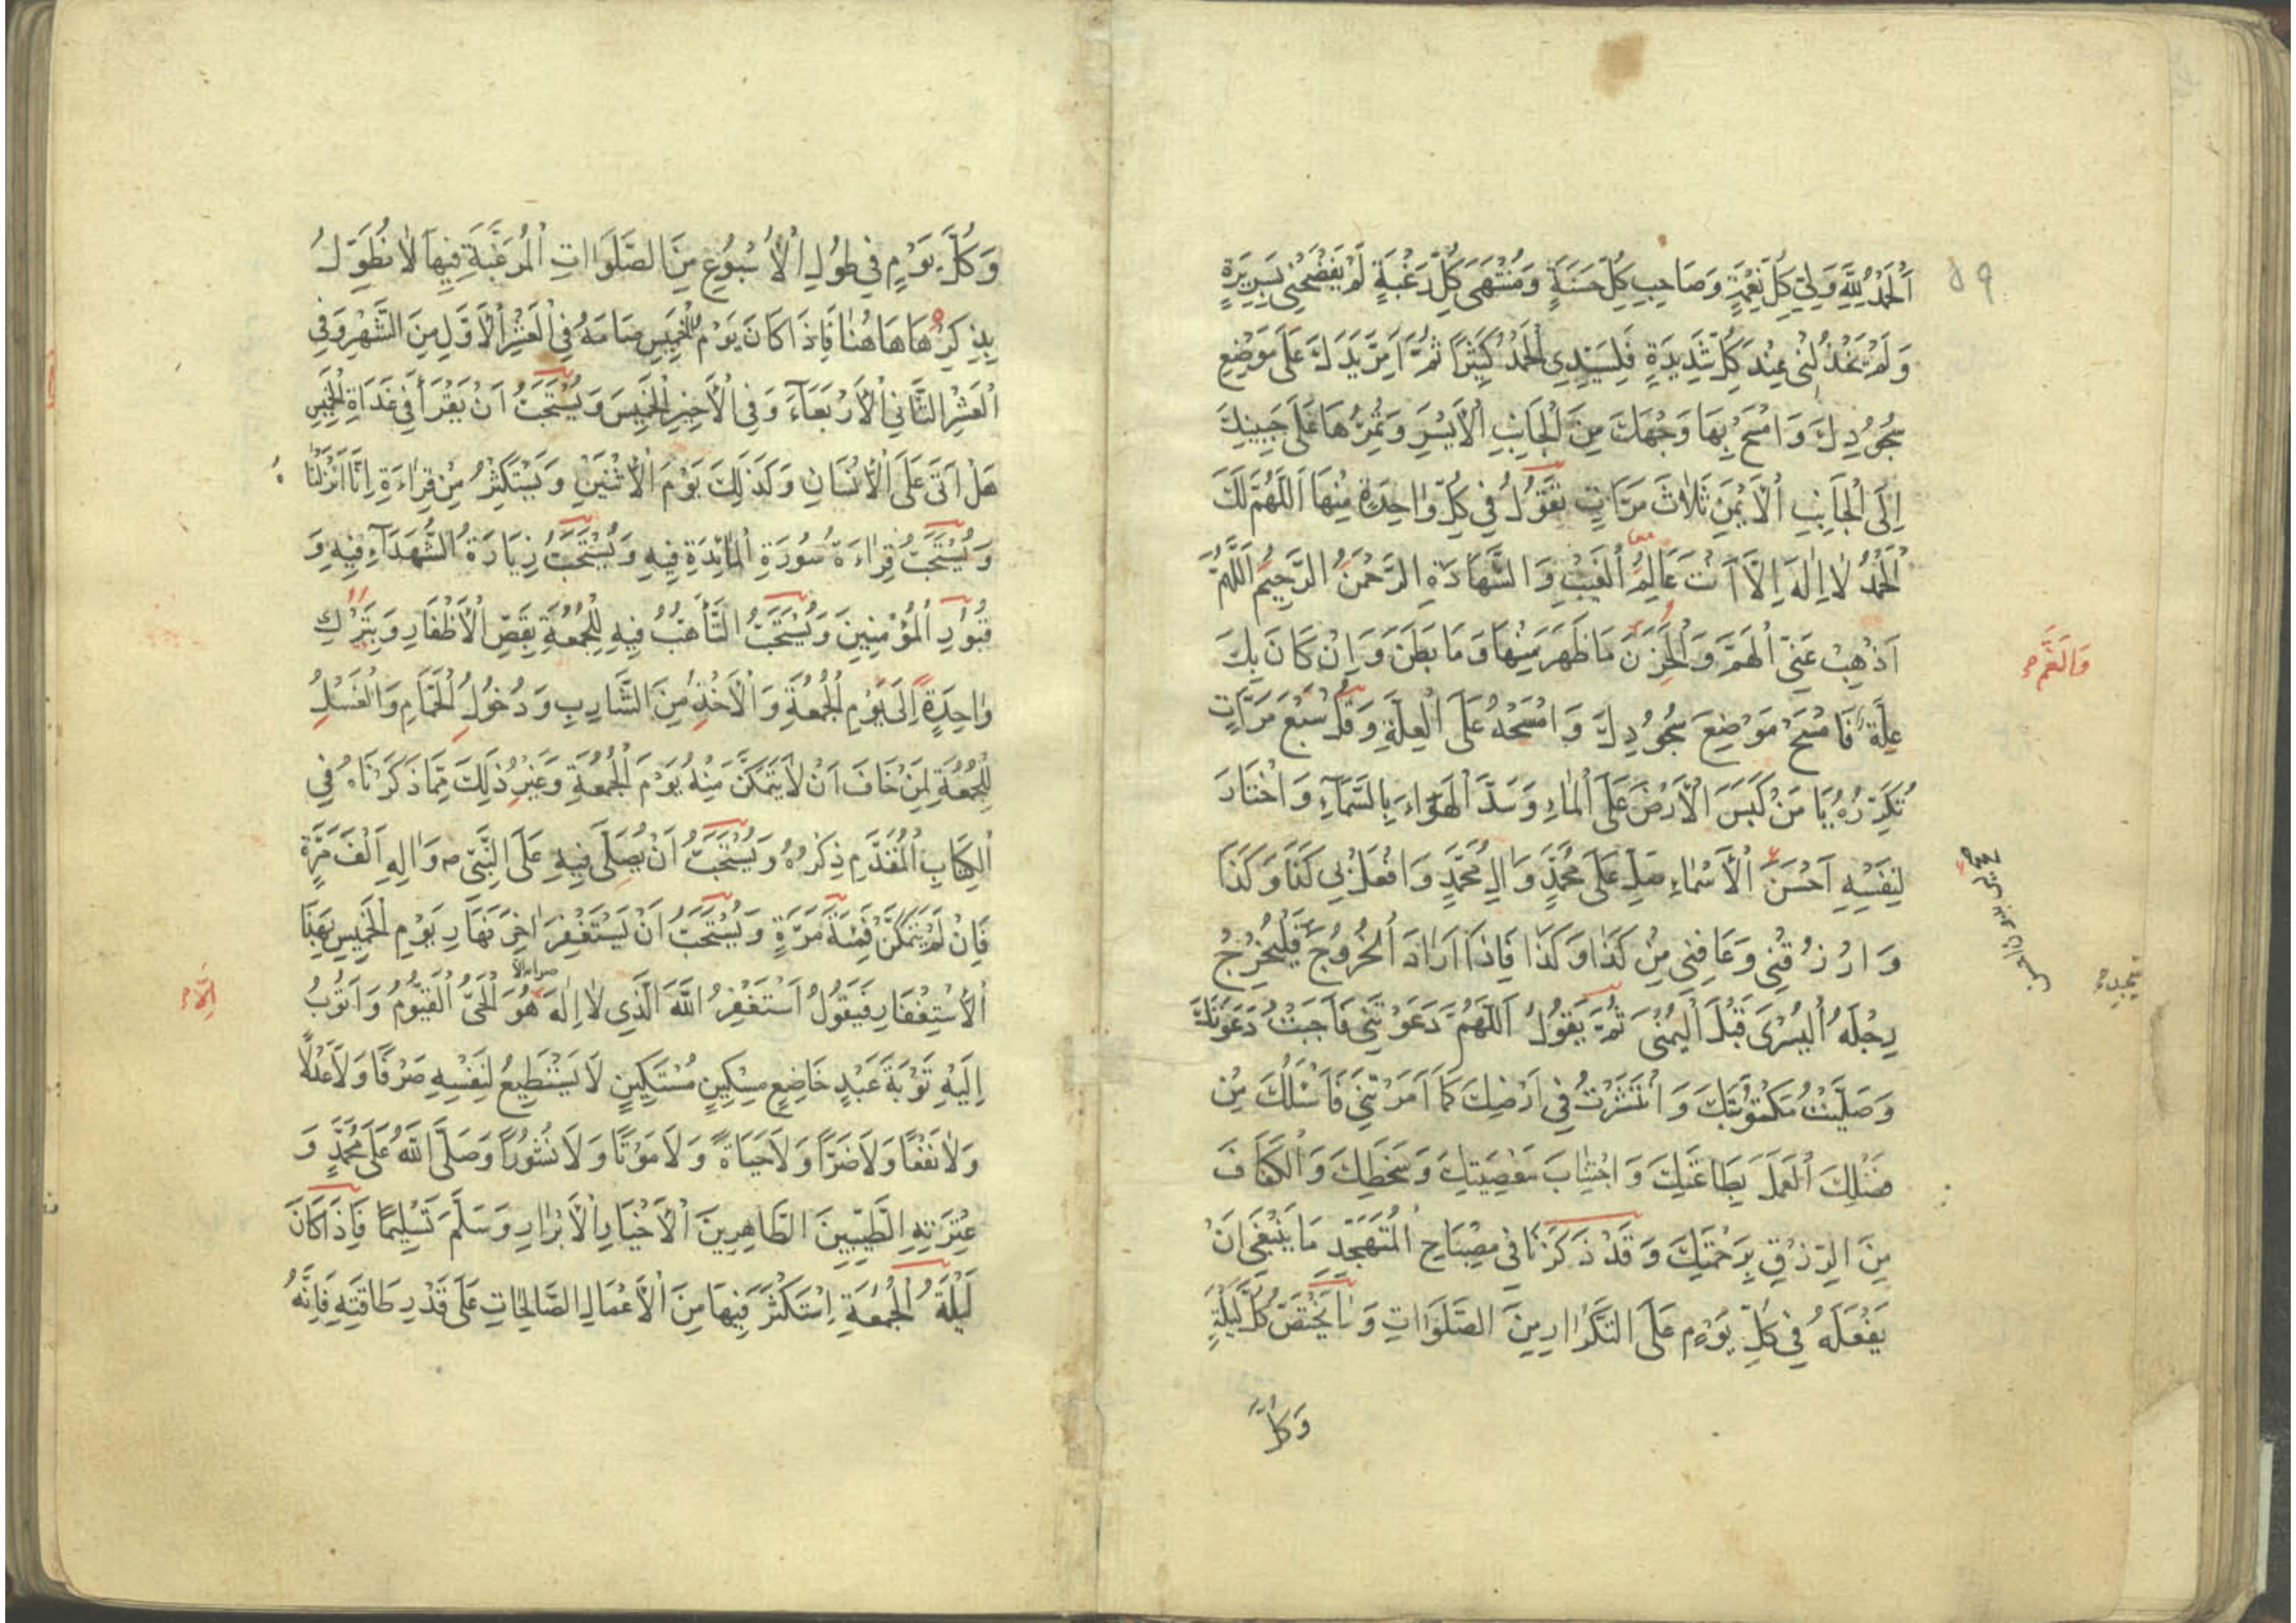 اَلْحَمْدُ لِلّٰهِ وَلِيِّ كُلِّ نِعْمَةٍ وَصَاحِبِ كُلِّ حَسَنَةٍ وَمُنْتَهٰى كُلِّ رَغْبَةٍ لَمْ يَفْضَحْنِي بِسَرِيرَةٍ
وَلَمْ يَخْذُلْنِي عِنْدَ كُلِّ شَدِيدَةٍ فَلِسَيِّدِي الْحَمْدُ كَثِيرًا ثُمَّ اَمِرَّ يَدَكَ عَلَى مَوْضِعِ
سُجُودِكَ وَامْسَحْ بِهَا وَجْهَكَ مِنَ الْجَانِبِ الْاَيْسَرِ وَتُمِرُّهَا عَلَى جَبِينِكَ
اِلَى الْجَانِبِ الْاَيْمَنِ ثَلَاثَ مَرَّاتٍ تَقُولُ فِي كُلِّ وَاحِدَةٍ مِنْهَا اَللّٰهُمَّ لَكَ
الْحَمْدُ لَا اِلٰهَ اِلَّا اَنْتَ عَالِمُ الْغَيْبِ وَالشَّهَادَةِ الرَّحْمٰنُ الرَّحِيمُ اَللّٰهُمَّ
اَذْهِبْ عَنِّي الْهَمَّ وَالْحَزَنَ مَا ظَهَرَ مِنْهَا وَمَا بَطَنَ وَاِنْ كَانَ بِكَ
وَالْغَمَّ
عِلَّةٌ فَامْسَحْ مَوْضِعَ سُجُودِكَ وَامْسَحْهُ عَلَى الْعِلَّةِ وَقُلْ سَبْعَ مَرَّاتٍ
تُكَرِّرُهُ يَا مَنْ كَبَسَ الْاَرْضَ عَلَى الْمَاءِ وَسَدَّ الْهَوَاءَ بِالسَّمَاءِ وَاخْتَارَ
لِنَفْسِهِ اَحْسَنَ الْاَسْمَاءِ صَلِّ عَلَى مُحَمَّدٍ وَاٰلِ مُحَمَّدٍ وَافْعَلْ بِي كَذَا وَكَذَا
وَارْزُقْنِي وَعَافِنِي مِنْ كَذَا وَكَذَا فَاِذَا اَرَادَ الْخُرُوجَ فَلْيُخْرِجْ
رِجْلَهُ الْيُسْرٰى قَبْلَ الْيُمْنٰى ثُمَّ يَقُولُ اَللّٰهُمَّ دَعَوْتَنِي فَاَجَبْتُ دَعْوَتَكَ
وَصَلَّيْتُ مَكْتُوبَتَكَ وَانْتَشَرْتُ فِي اَرْضِكَ كَمَا اَمَرْتَنِي فَاَسْئَلُكَ مِنْ
فَضْلِكَ الْعَمَلَ بِطَاعَتِكَ وَاجْتِنَابَ مَعْصِيَتِكَ وَسَخَطِكَ وَالْكَفَافَ
مِنَ الرِّزْقِ بِرَحْمَتِكَ وَقَدْ ذَكَرْنَا فِي مِصْبَاحِ الْمُتَهَجِّدِ مَا يَنْبَغِي اَنْ
يَفْعَلَهُ فِي كُلِّ يَوْمٍ عَلَى التَّكْرَارِ مِنَ الصَّلَوَاتِ وَمَا يَخْتَصُّ كُلَّ لَيْلَةٍ
وَكُلَّ
وَكُلَّ يَوْمٍ فِي طُولِ الْاُسْبُوعِ مِنَ الصَّلَوَاتِ الْمُرَغَّبَةِ فِيهَا لَا نُطَوِّلُ
بِذِكْرِهَا هَاهُنَا فَاِذَا كَانَ يَوْمُ الْخَمِيسِ صَامَهُ فِي الْعَشْرِ الْاَوَّلِ مِنَ الشَّهْرِ وَفِي
الْعَشْرِ الثَّانِي الْاَرْبَعَاءَ وَفِي الْاَخِيرِ الْخَمِيسَ وَيُسْتَحَبُّ اَنْ يَقْرَأَ فِي غَدَاةِ الْخَمِيسِ
هَلْ اَتٰى عَلَى الْاِنْسَانِ وَكَذَلِكَ يَوْمَ الْاِثْنَيْنِ وَيَسْتَكْثِرُ مِنْ قِرَاءَةِ اِنَّا اَنْزَلْنَا
وَيُسْتَحَبُّ قِرَاءَةُ سُورَةِ الْمَائِدَةِ فِيهِ وَيُسْتَحَبُّ زِيَارَةُ الشُّهَدَاءِ فِيهِ وَ
قُبُورِ الْمُؤْمِنِينَ وَيُسْتَحَبُّ التَّأَهُّبُ فِيهِ لِلْجُمُعَةِ بِقَصِّ الْاَظْفَارِ وَبِتَرْكِ
وَاحِدَةٍ اِلَى يَوْمِ الْجُمُعَةِ وَالْاَخْذِ مِنَ الشَّارِبِ وَدُخُولِ الْحَمَّامِ وَالْغُسْلِ
لِلْجُمُعَةِ لِمَنْ خَافَ اَنْ لَا يَتَمَكَّنَ مِنْهُ يَوْمَ الْجُمُعَةِ وَغَيْرِ ذَلِكَ مِمَّا ذَكَرْنَاهُ فِي
الْكِتَابِ الْمُقَدَّمِ ذِكْرُهُ وَيُسْتَحَبُّ اَنْ يُصَلَّى فِيهِ عَلَى النَّبِيِّ ص وَاٰلِهِ اَلْفَ مَرَّةٍ
فَاِنْ لَمْ يَتَمَكَّنْ فَمِئَةَ مَرَّةٍ وَيُسْتَحَبُّ اَنْ يَسْتَغْفِرَ اٰخِرَ نَهَارِ يَوْمِ الْخَمِيسِ بِهَذَا
الْاِسْتِغْفَارِ فَيَقُولُ اَسْتَغْفِرُ اللّٰهَ الَّذِي لَا اِلٰهَ هُوَ الْحَيُّ الْقَيُّومُ وَاَتُوبُ
اِلَّا
اِلَيْهِ تَوْبَةَ عَبْدٍ خَاضِعٍ مِسْكِينٍ مُسْتَكِينٍ لَا يَسْتَطِيعُ لِنَفْسِهِ صَرْفًا وَلَا عَدْلًا
وَلَا نَفْعًا وَلَا ضَرًّا وَلَا حَيَاةً وَلَا مَوْتًا وَلَا نُشُورًا وَصَلَّى اللّٰهُ عَلَى مُحَمَّدٍ وَ
عِتْرَتِهِ الطَّيِّبِينَ الطَّاهِرِينَ الْاَخْيَارِ الْاَبْرَارِ وَسَلَّمَ تَسْلِيمًا فَاِذَا كَانَ
لَيْلَةُ الْجُمُعَةِ اِسْتَكْثَرَ فِيهَا مِنَ الْاَعْمَالِ الصَّالِحَاتِ عَلَى قَدْرِ طَاقَتِهِ فَاِنَّهُ